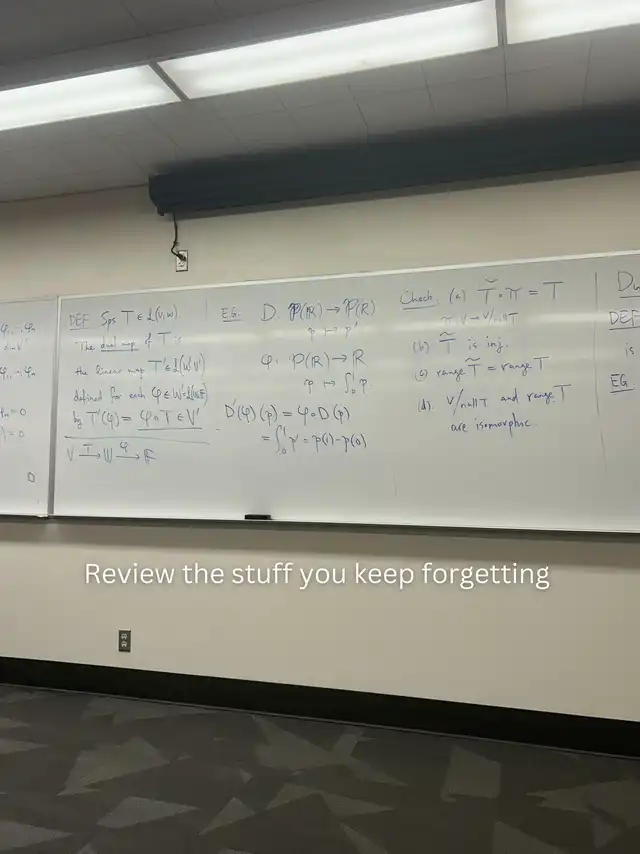 φ₁, ..., φₙ
φ₁, ..., φₙ
= 0
= 0
□
DEF Sps T ∈ L(V,W).
The dual map of T is
the linear map T' ∈ L(W',V')
defined for each φ ∈ W' = L(W,F)
by T'(φ) = φ∘T ∈ V'
V —T→ W —φ→ F
EG. D: P(R) → P(R)
p ↦ p'
φ: P(R) → R
p ↦ ∫₀¹ p
D'(φ)(p) = φ∘D(p)
= ∫₀¹ p' = p(1) - p(0)
Check. (a) T̃∘π = T
(b) T̃ is inj.
(c) range T̃ = range T
(d). V/null T and range T
are isomorphic.
DEF
is
EG
Review the stuff you keep forgetting